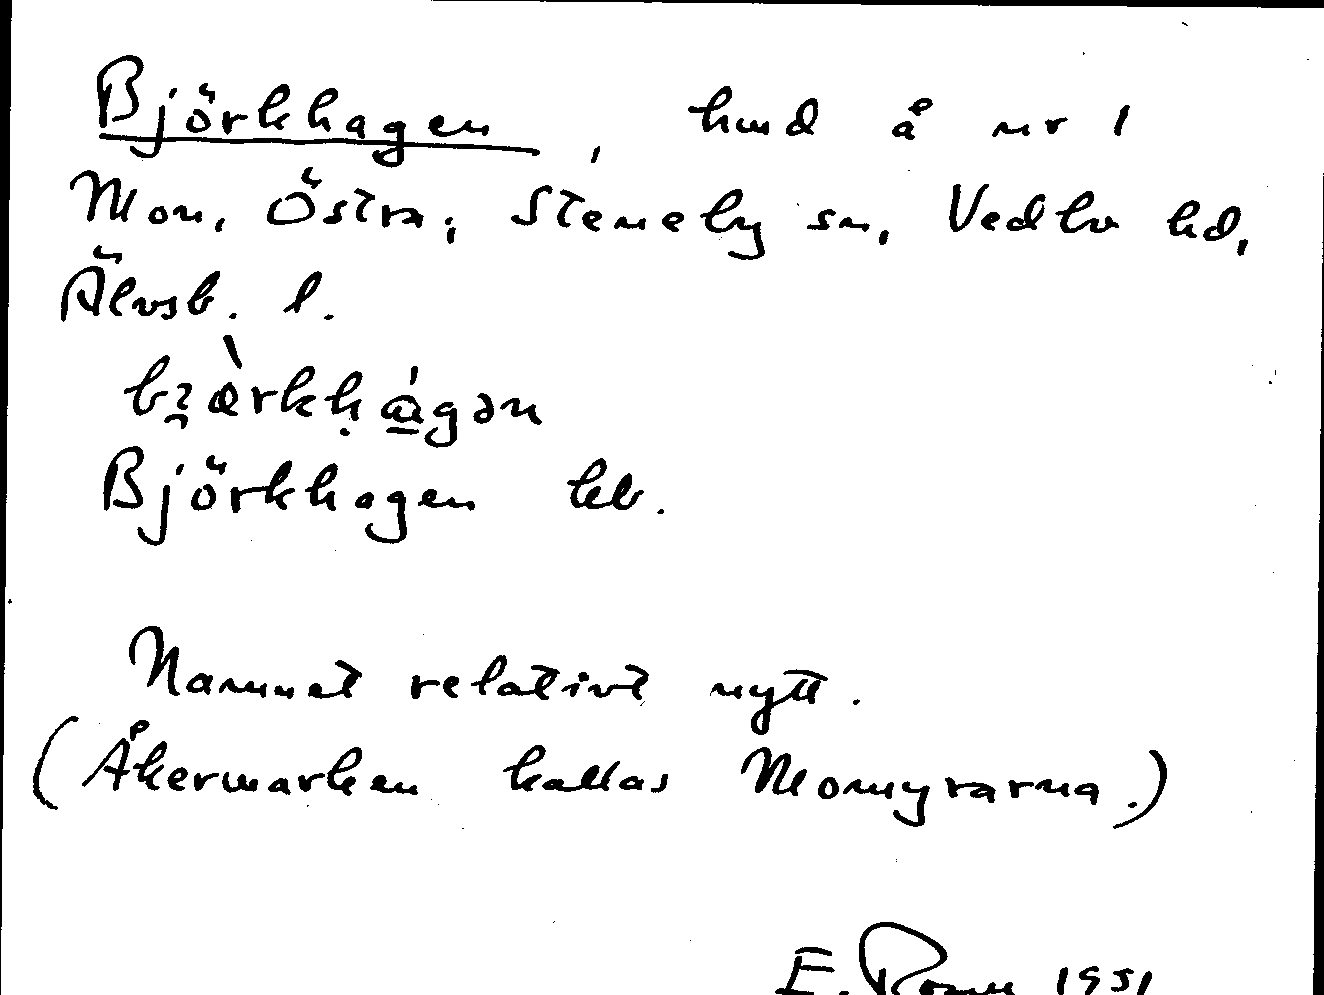 Björkhagen, hmd å nr 1
Mon, Östra; Steneby sn, Vedbo hd,
Älvsb. l.
Björkhagen kb.
Namnet relativt nytt.
(Åkermarken kallas Momyrarna.)
E. 1931